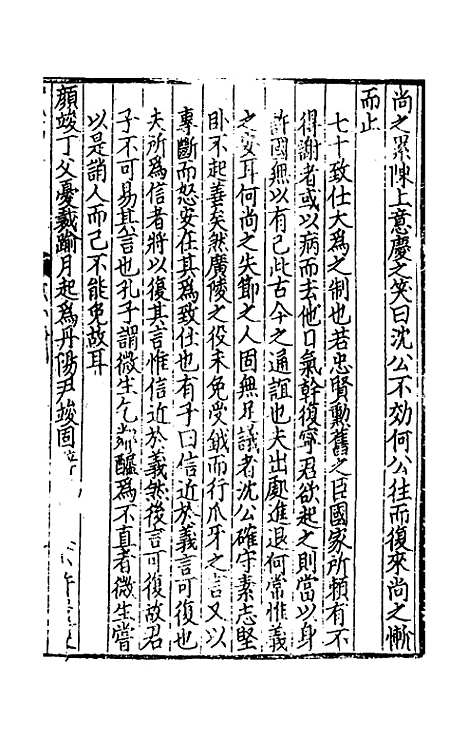 尚之累陳上意慶之笑曰沈公不効何公往而復來尚之慚
而止
七十致仕大為之制也若忠賢勳舊之臣國家所賴有不
得謝者或以病而去他日氣幹復寧君欲起之則當以身
許國無以有己此古今之通誼也夫出處進退何常惟義
之安耳何尚之失節之人固無足議者沈公確守素志堅
卧不起善矣然廣陵之役未免受鉞而行爪牙之言又以
專斷而怒安在其為致仕也有子曰信近於義言可復也
夫所為信者將以復其言惟信近於義然後言可復故君
子不可易其言也孔子謂微生乞鄰醯為不直者微生嘗
以是誚人而己不能免故耳
顏竣丁父憂裁踰月起為丹陽尹竣固